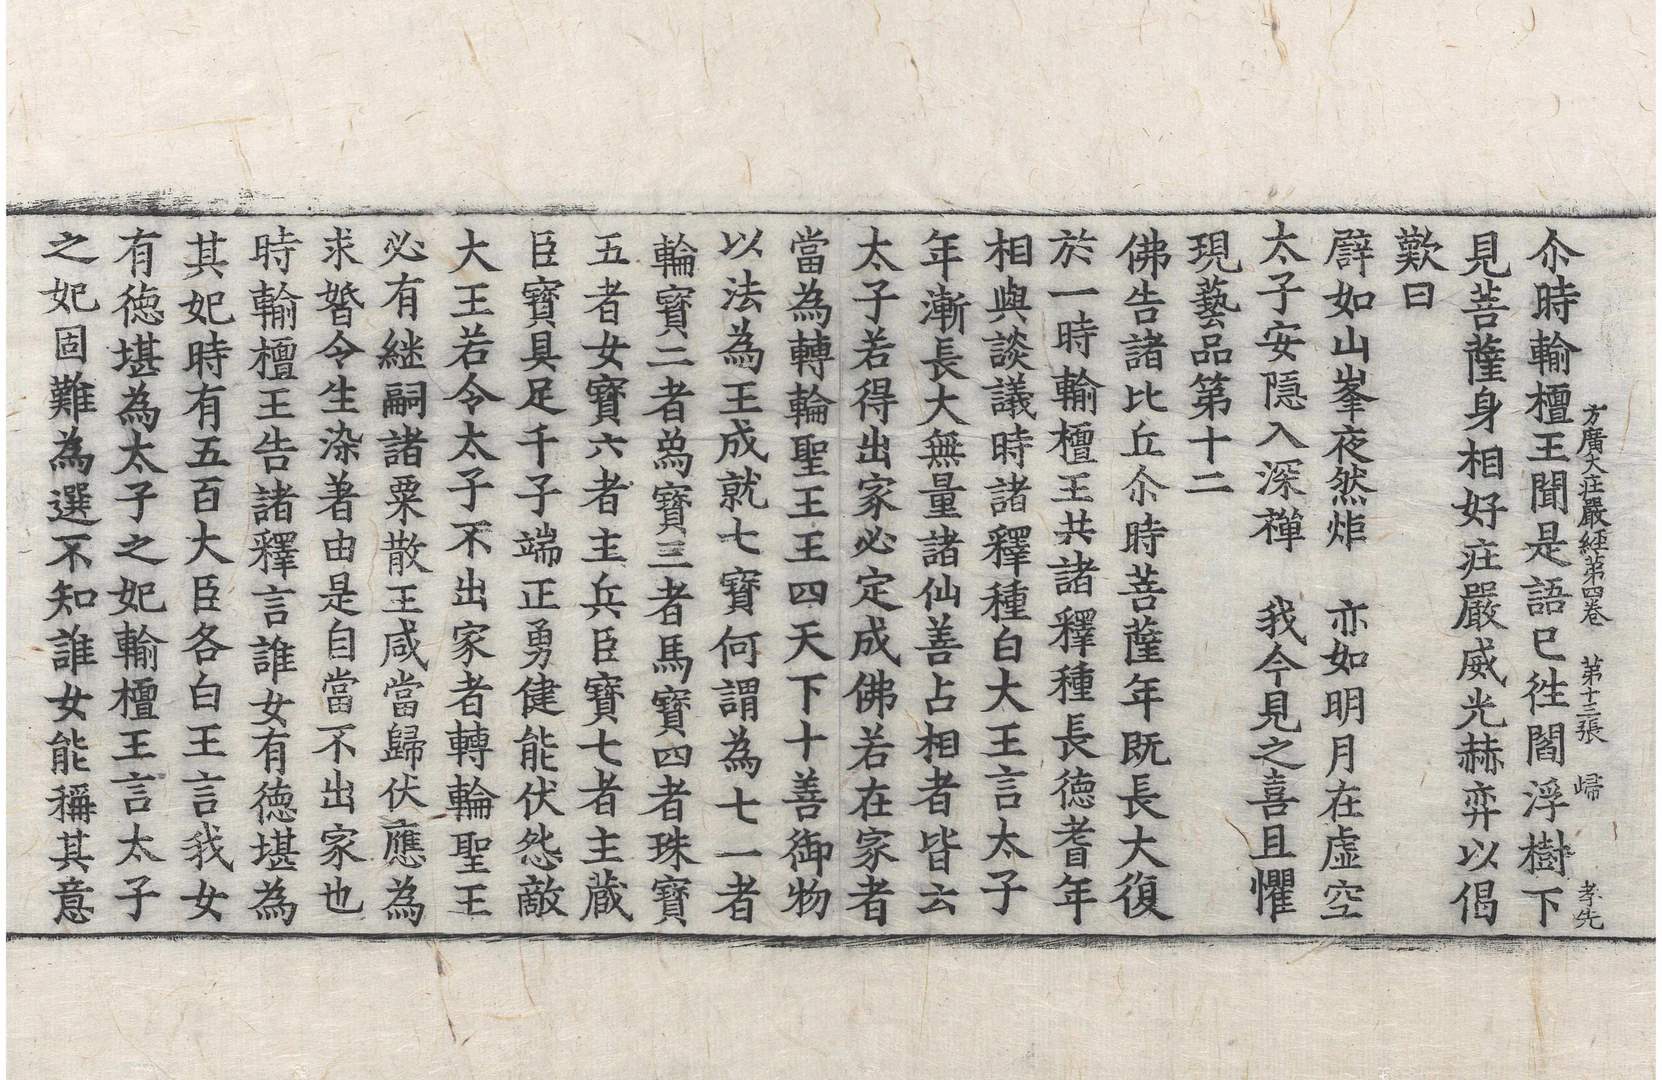 方廣大莊嚴經第四卷 第十三張 歸 孝先
尒時輸檀王聞是語已往閻浮樹下
見菩薩身相好莊嚴威光赫弈以偈
歎曰
譬如山峯夜然炬 亦如明月在虛空
太子安隱入深禪 我今見之喜且懼
現藝品第十二
佛告諸比丘尒時菩薩年既長大復
於一時輸檀王共諸釋種長德耆年
相與談議時諸釋種白大王言太子
年漸長大無量諸仙善占相者皆云
太子若得出家必定成佛若在家者
當為轉輪聖王王四天下十善御物
以法為王成就七寶何謂為七一者
輪寶二者爲寶三者馬寶四者珠寶
五者女寶六者主兵臣寶七者主藏
臣寶具足千子端正勇健能伏怨敵
大王若令太子不出家者轉輪聖王
必有継嗣諸粟散王咸當歸伏應為
求婚令生染著由是自當不出家也
時輸檀王告諸釋言誰女有德堪為
其妃時有五百大臣各白王言我女
有德堪為太子之妃輸檀王言太子
之妃固難為選不知誰女能稱其意